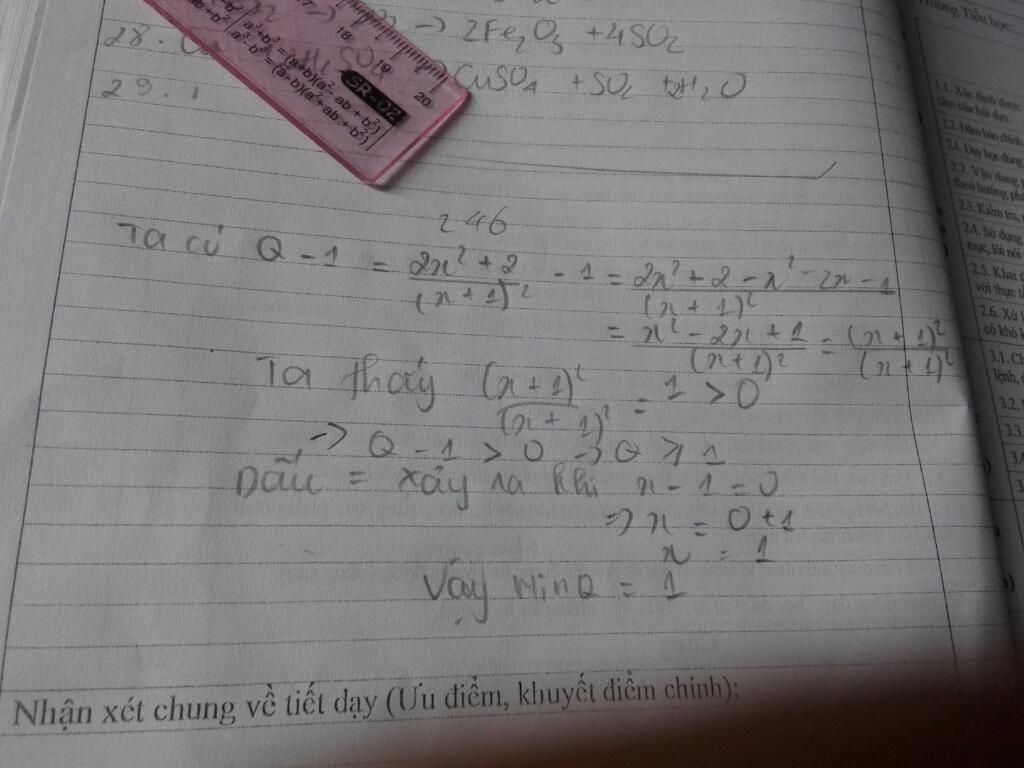 → 2Fe₂O₃ + 4SO₂
28.
CuSO₄ + SO₂ + 2H₂O
29.
17 18 19 20
a³+b³ = (a+b)(a²-ab+b²)
a³-b³ = (a-b)(a²+ab+b²)
SR-02
246
Ta có Q - 1 = (2x² + 2)/(x + 1)² - 1 = (2x² + 2 - x² - 2x - 1)/(x + 1)²
= (x² - 2x + 1)/(x+1)² = (x + 1)²/(x + 1)²
Ta thấy (x + 1)²/(x + 1)² = 1 > 0
-> Q - 1 > 0 -> Q ≥ 1
Dấu = xảy ra khi x - 1 = 0
=> x = 0 + 1
x = 1
Vậy Min Q = 1
Nhận xét chung về tiết dạy (Ưu điểm, khuyết điểm chính):
Trường Tiểu học:
1.1. Xác định được
tâm của bài dạy.
1.2. Đảm bảo chính
2.1. Dạy học đúng
2.2. Vận dụng
theo hướng phá
2.3. Kiểm tra,
2.4. Sử dụng,
mực, lời nói
2.5. Khai
với thực t
2.6. Xử l
có khó k
3.1. Ch
lệnh,
3.2.
3.3